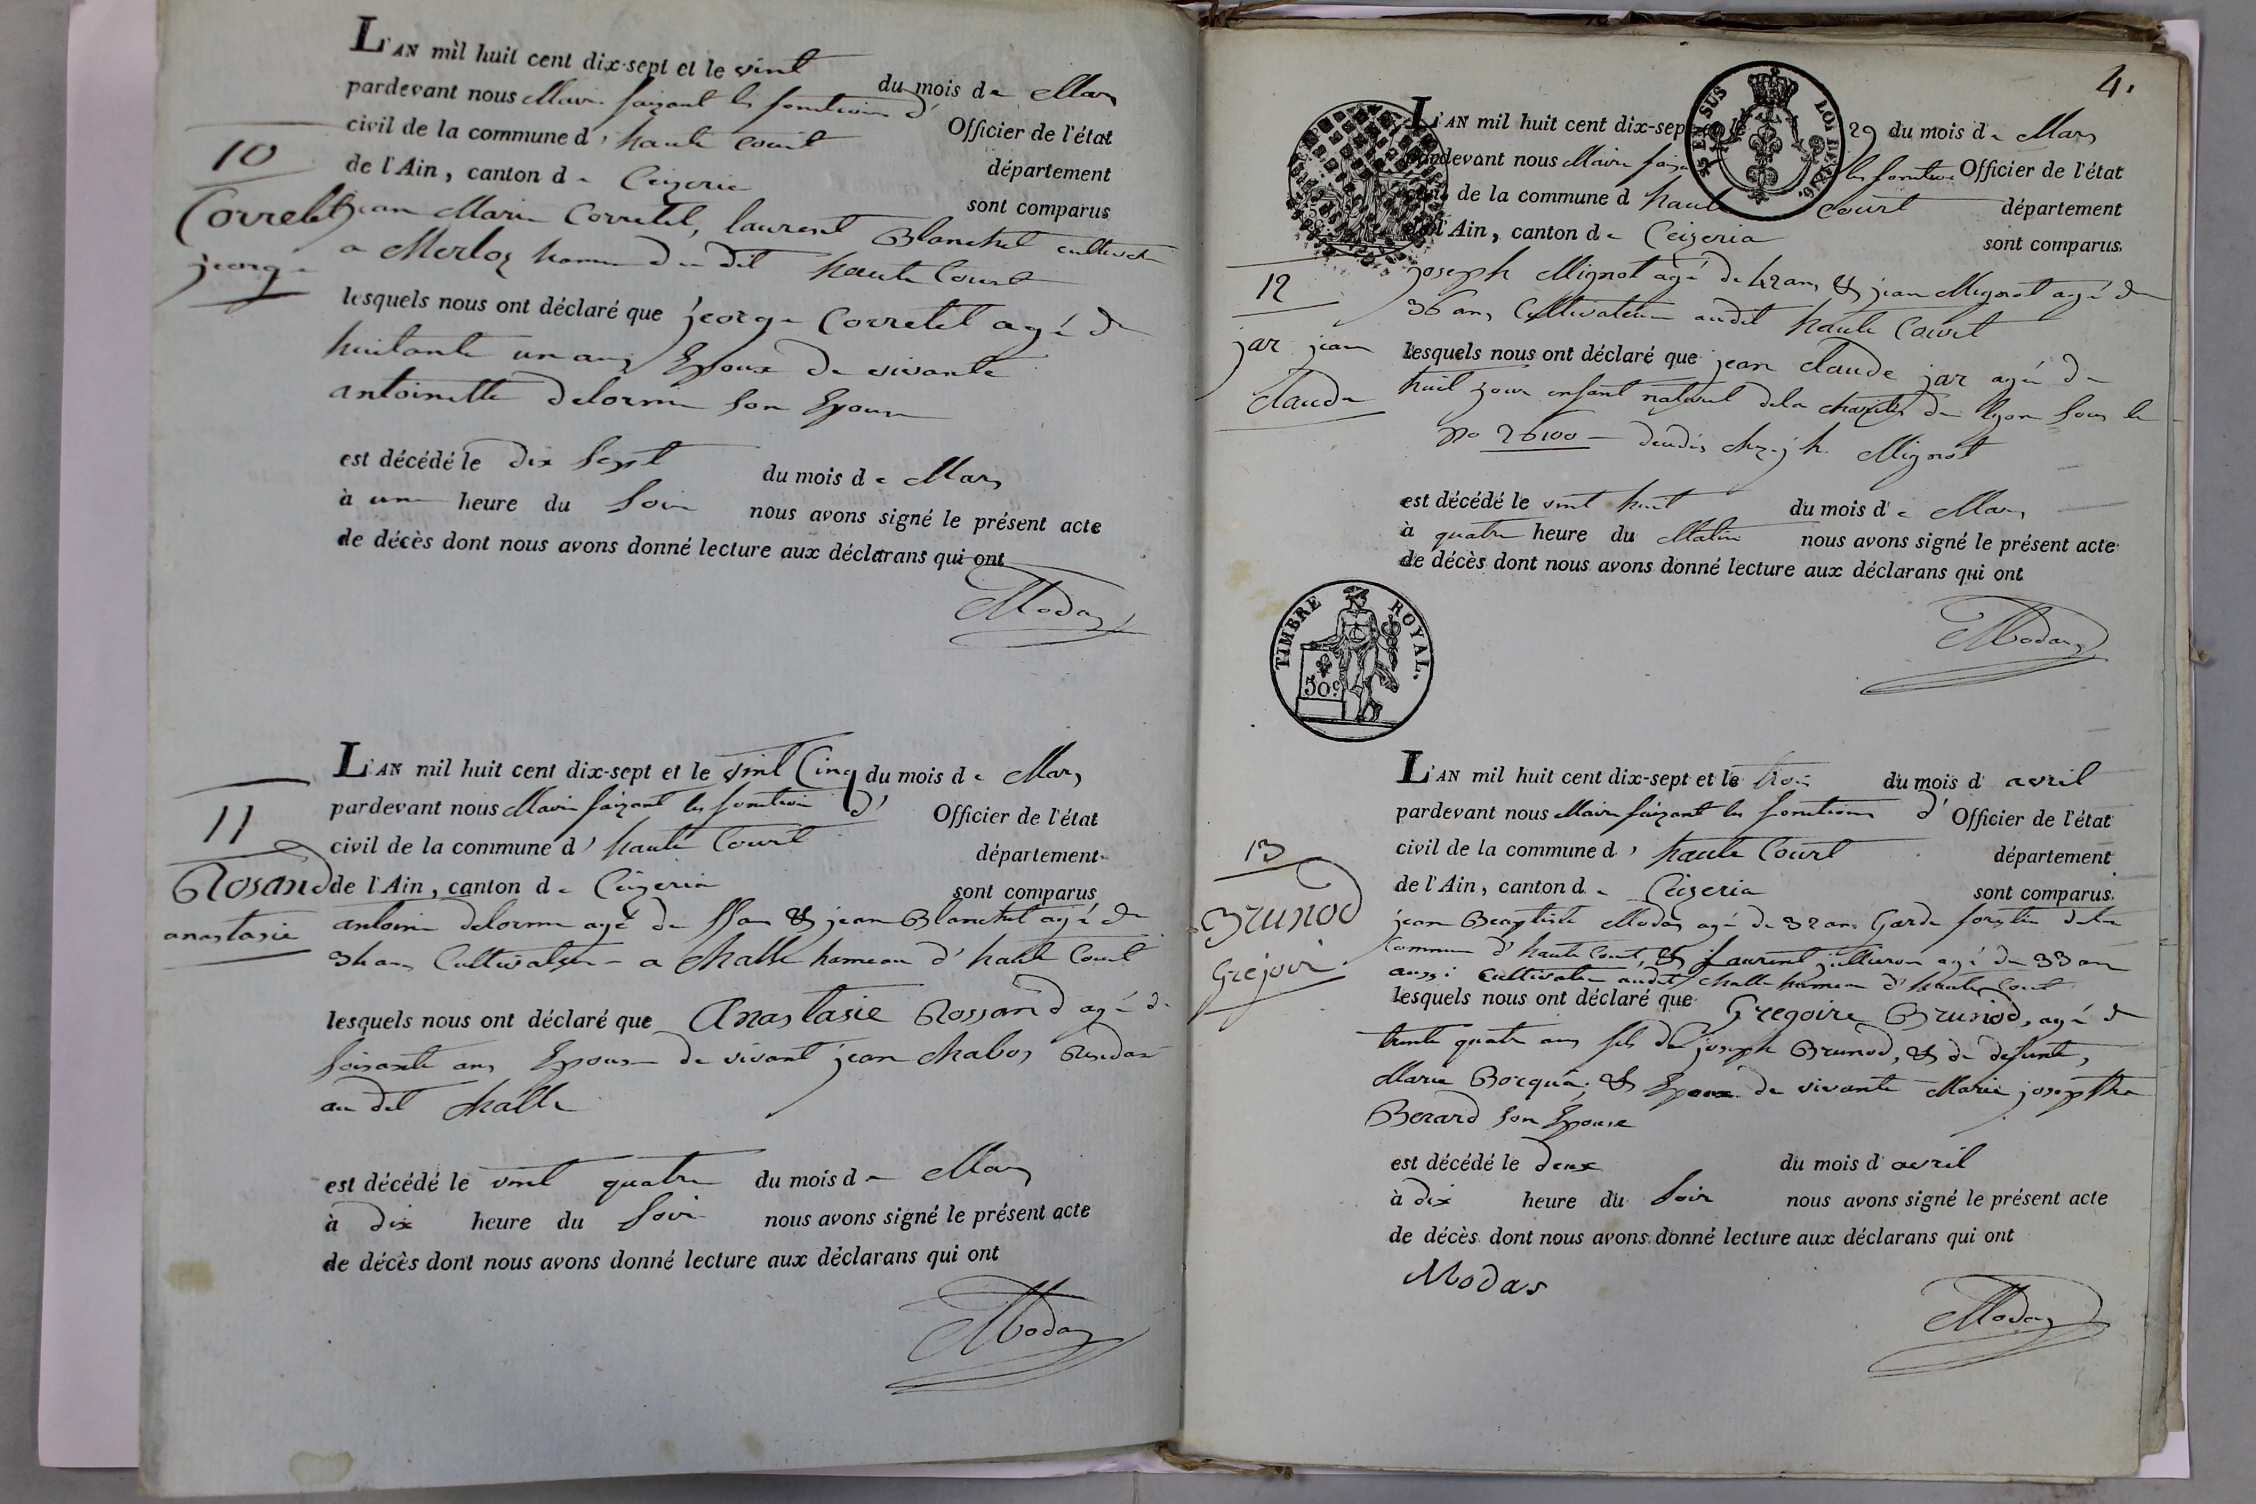 L'AN mil huit cent dix-sept et le vint du mois de Mars
pardevant nous Maire faizant les fonctions d' Officier de l'état
civil de la commune d' haute Court département
10
de l'Ain, canton de Ceizeria sont comparus
Corretet
george
jean Marie Corretet, laurent Blanchet cultivat
a Merloz hameau du dit haute Court
lesquels nous ont déclaré que george Corretet agé de
huitante un ans Epoux de vivante
antoinette Delorme son Epouse
est décédé le dix Sept du mois de Mars
à une heure du Soir nous avons signé le présent acte
de décès dont nous avons donné lecture aux déclarans qui ont
Modas
L'AN mil huit cent dix-sept et le vint Cinq du mois de Mars
pardevant nous Maire faizant les fonction d' Officier de l'état
11
civil de la commune d' haute Court département
Rosand
anastasie
de l'Ain, canton de Ceizeria sont comparus
antoine delorme agé de & jean Blanchet agé de
34 ans Cultivateur a Challe hameau d' haute Court
lesquels nous ont déclaré que Anastasie Rossand agé de
soixante ans Epouse de vivant jean Chabos
au dit Challe
est décédé le vint quatre du mois de Mars
à dix heure du Soir nous avons signé le présent acte
de décès dont nous avons donné lecture aux déclarans qui ont
Modas
4.
L'AN mil huit cent dix-sept et le 29 du mois de Mars
pardevant nous Maire faiz les fonction Officier de l'état
civil de la commune d haute Court département
de l'Ain, canton de Ceizeria sont comparus.
12
jar jean
Claude
joseph Mignot agé de 42 ans & jean Mignot agé de
36 ans Cultivateur audit haute Court
lesquels nous ont déclaré que jean Claude jar agé de
huit jour enfant naturel dela charité de lyon sous le
No 26100 Mignot
est décédé le vint huit du mois de Mars
à quatre heure du Matin nous avons signé le présent acte
de décès dont nous avons donné lecture aux déclarans qui ont
Modas
TIMBRE ROYAL.
50 c
L'AN mil huit cent dix-sept et le trois du mois d avril
pardevant nous Maire faizant les fonctions d' Officier de l'état
civil de la commune d' haute Court département
13
Brunod
Gréjoire
de l'Ain, canton de Ceizeria sont comparus.
jean Baptiste Modas agé de 32 ans Garde forestier dela
Commune d' haute Court, & Laurent jullieron agé de 33 ans
aussi Cultivateur audit Challe hameau d' haute Court
lesquels nous ont déclaré que Gregoire Brunod, agé de
trente quatre ans fils de joseph Brunod, & de defunte,
Marie Bocqua; & Epoux de vivante Marie josephte
Berard son Epouse
est décédé le deux du mois d avril
à dix heure du Soir nous avons signé le présent acte
de décès dont nous avons donné lecture aux déclarans qui ont
Modas
Modas